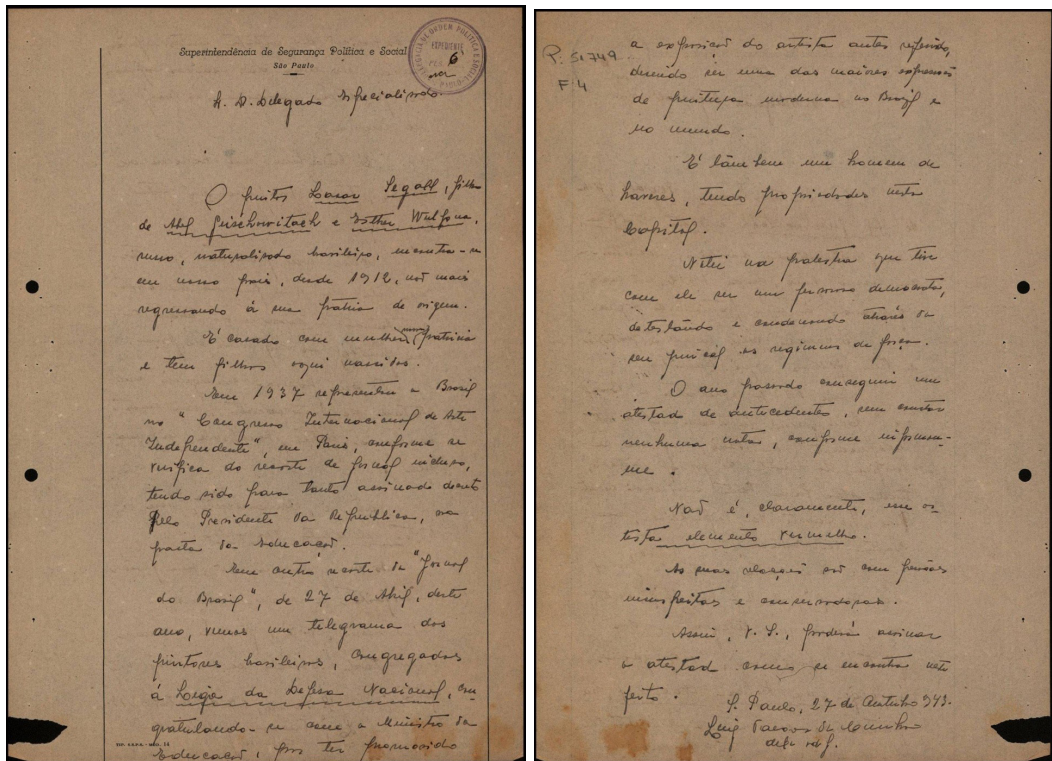 Superintendência de Segurança Política e Social
São Paulo
EXPEDIENTE
6
S. D. Delegado Especialisado.
O pintor Lasar Segall, filho
de Abel e Esther
russo, naturalisado brasileiro, encontra-se
em nosso pais, desde 1912, não mais
regressando á sua pátria de origem.
É casado com mulher patricia
e tem filhos aqui nascidos.
Em 1937 representou o Brasil
no "Congresso Internacional de Arte
Independente", em Paris, conforme se
verifica do recorte de jornal incluso,
tendo sido para tanto assinado decreto
pelo Presidente da Republica, na
pasta da Educação.
Em outro recorte do "Jornal
do Brasil", de 27 de Abril, deste
ano, vemos um telegrama dos
pintores brasileiros, congregados
á Liga da Defesa Nacional, con
gratulando-se com o Ministro da
Educação, por ter promovido
P. 51749
F 4
a exposição do artista antes referido,
devido ser uma das maiores expressões
de pintura moderna no Brazil e
no mundo.
É tambem um homem de
haveres, tendo propriedades nesta
Capital.
Notei na palestra que tive
com ele ser um fervoroso democrata,
detestando e condenando através do
seu pincel os regimens de força.
O ano passado conseguiu um
atestado de antecedentes, sem constar
nenhuma nota, conforme informou-
me.
Não é, claramente, um os-
tensivo elemento vermelho.
As suas relações são com pessoas
insuspeitas e conservadoras.
Assim, V. S., poderá assinar
o atestado como se encontra
feito.
S. Paulo, 27 de 943.
Luiz da Cunha